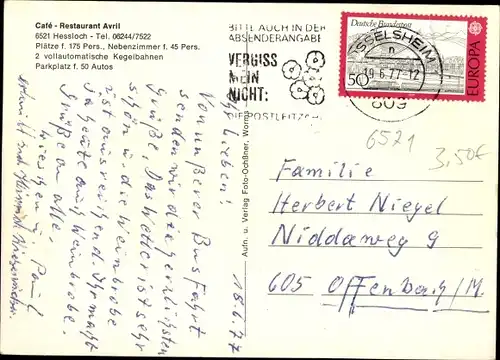 Café - Restaurant Avril
6521 Hessloch - Tel. 06244/7522
Plätze f. 175 Pers., Nebenzimmer f. 45 Pers.
2 vollautomatische Kegelbahnen
Parkplatz f. 50 Autos
BITTE AUCH IN DER
ABSENDERANGABE
VERGISS
MEIN
NICHT:
DIE POSTLEITZAHL
SSELSHEIM
n
19.6.77-12
609
Deutsche Bundespost
50
EUROPA
6521
3,50€
Aufn. u. Verlag Foto-Ochßner, Worms
18.6.77
Ihr Lieben!
Von unßerer Busfahrt
senden wir die herzlichsten
Grüße. Das Wetter ist sehr
schön u. die Weinprobe
ist ausreichend. Ihr macht
ja heute auch Weinprobe.
Grüße an alle,
u. Paul
Familie
Herbert Niegel
Niddaweg 9
605 Offenbach/M.